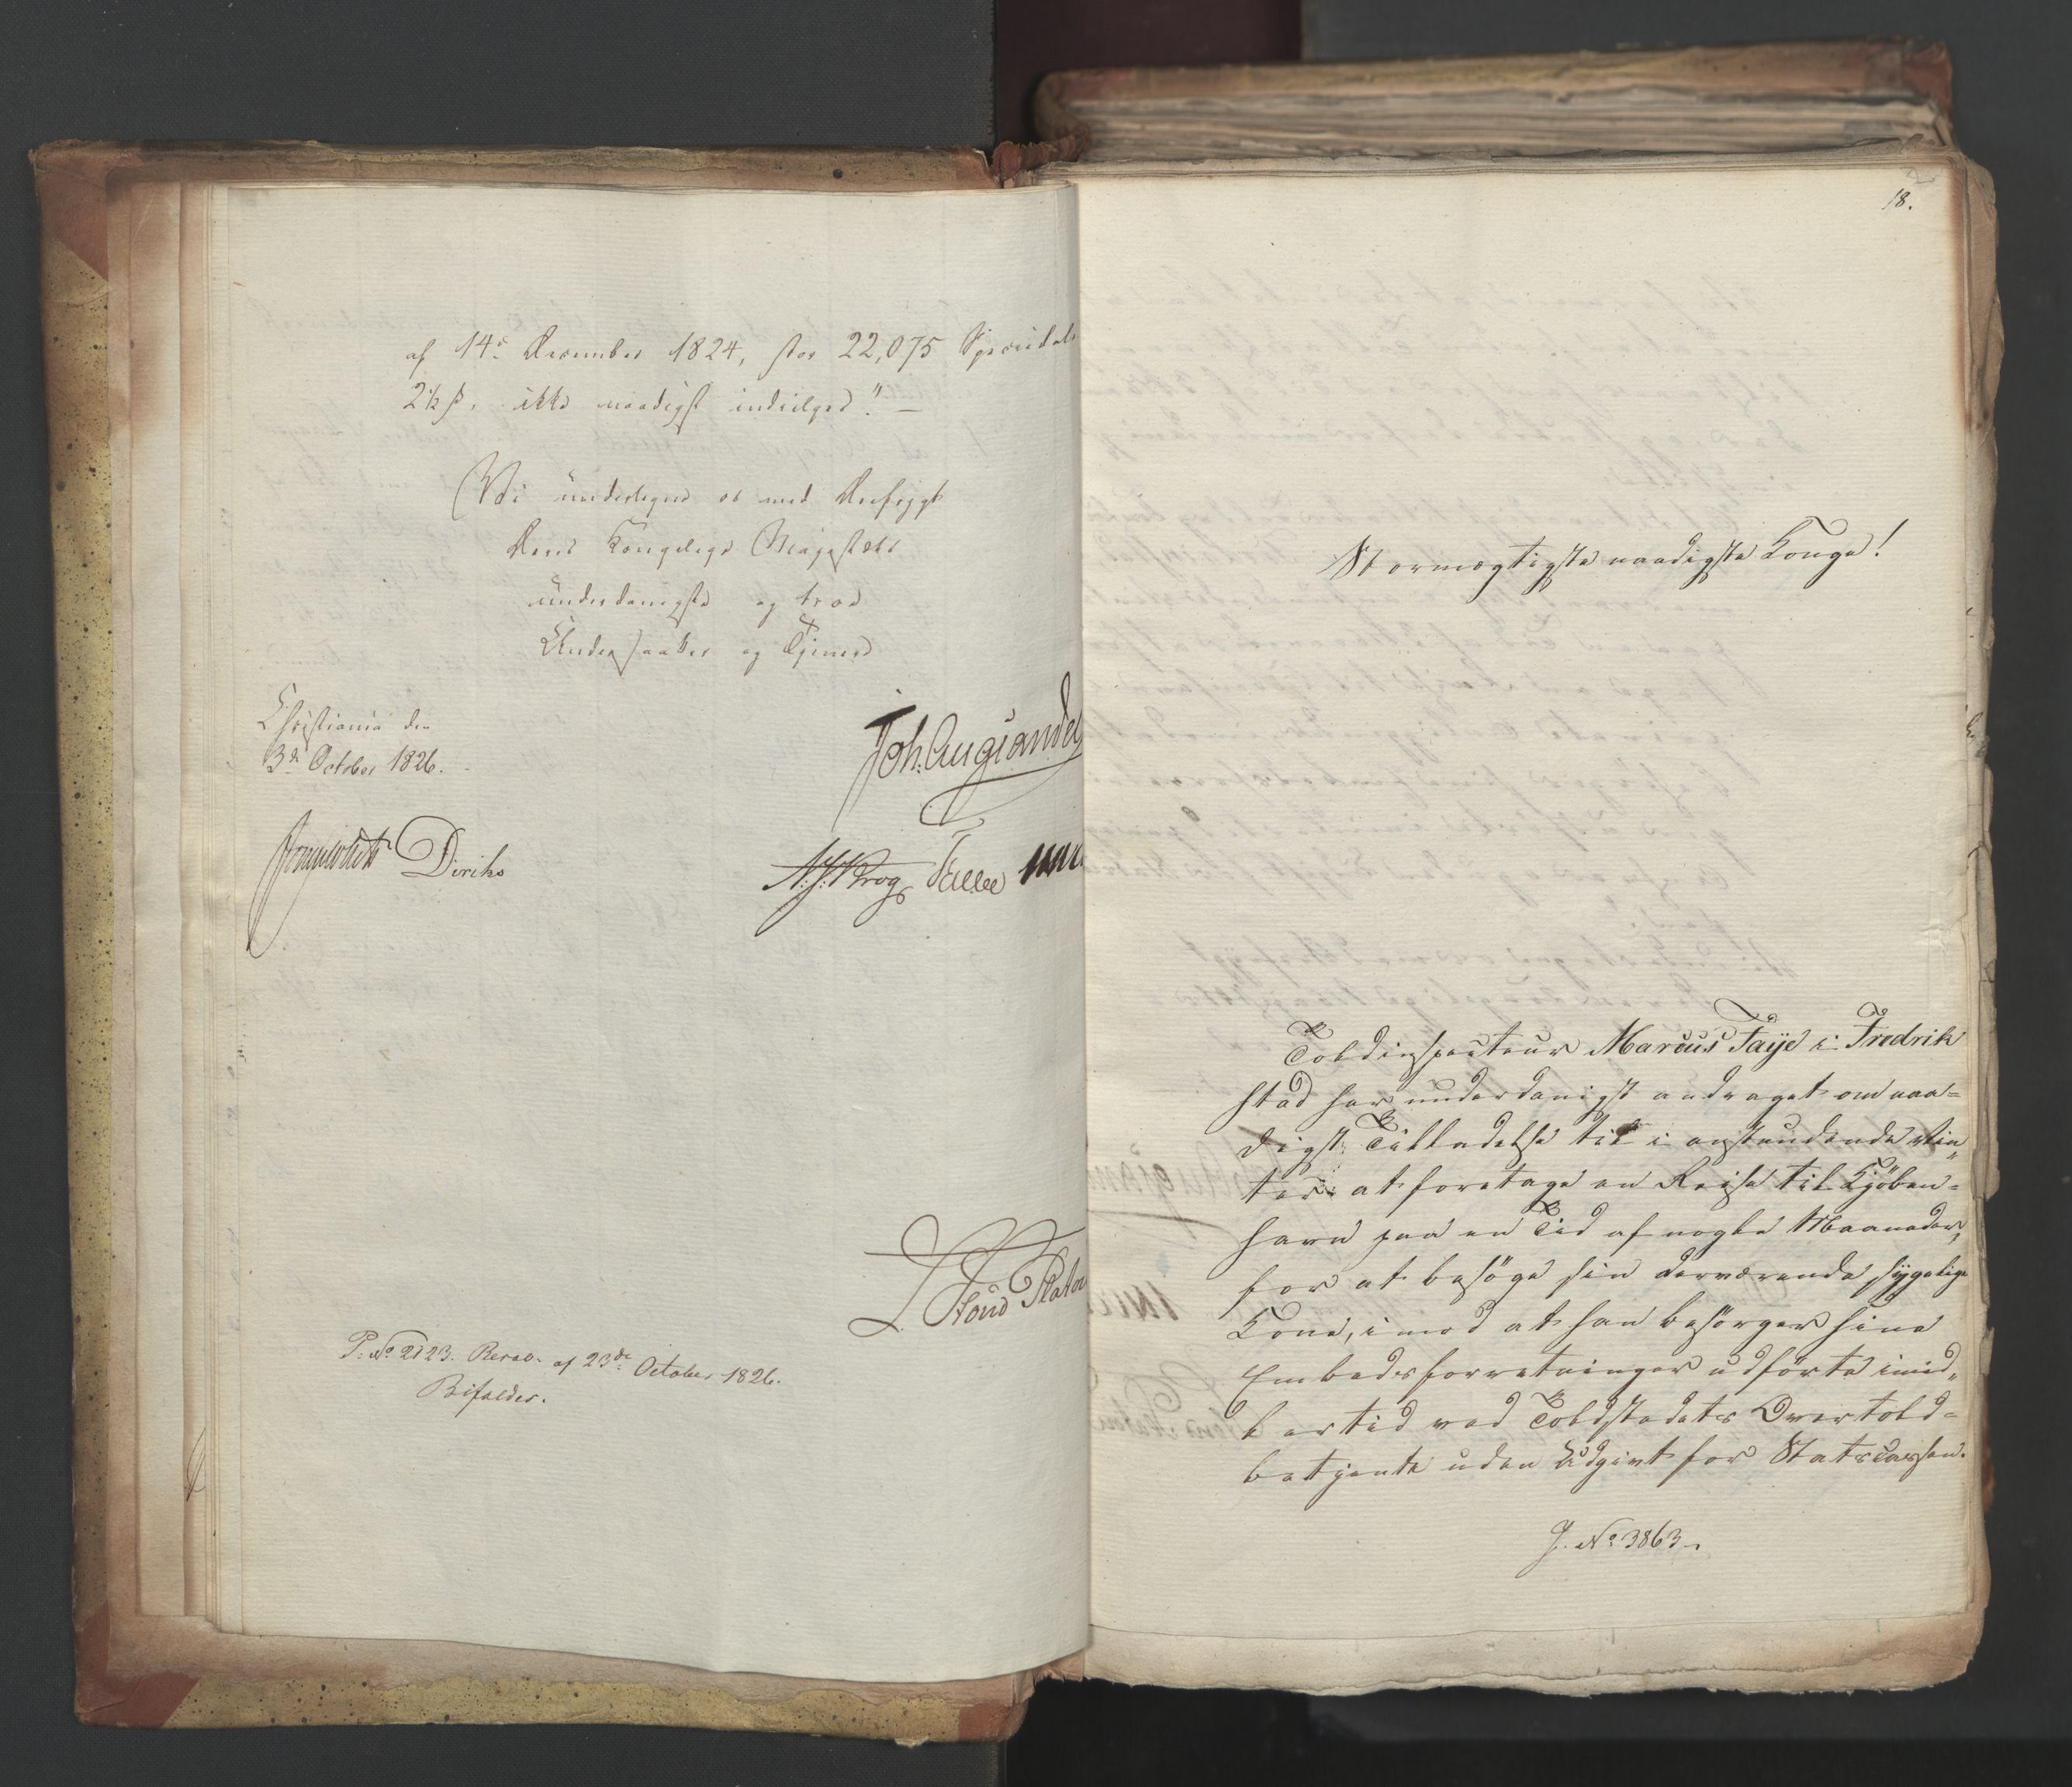 af 14de December 1824, stor 22,075 Speciedal
2½ ß, ikke naadigst indvilges." —
Vi undertegne os med Dyb
Deres Kongelige Majestæts
underdanigste og troe
Undersaatter og Tjenere
Christiania den
3de October 1826.
Joh. Aug. Sande
Diriks
N. J. Krog
P. No 2123. Resol. af 23de October 1826.
Bifaldes.
18.
Stormægtigste naadigste Konge!
Toldinspecteur Marcus Faye i Fredrik
stad har underdanigst andraget om naa=
digst Tilladelse til i anstundende Vin„
ter at foretage en Reise til Kjöben=
havn paa en Tid af nogle Maaneder,
for at besöge sin derværende sygelige
Kone, imod at han besörger sine
Embedsforretninger udförte imid„
lertid ved Toldstedets Overtold=
betjente uden Udgivt for Statscassen.
J. No 3863.